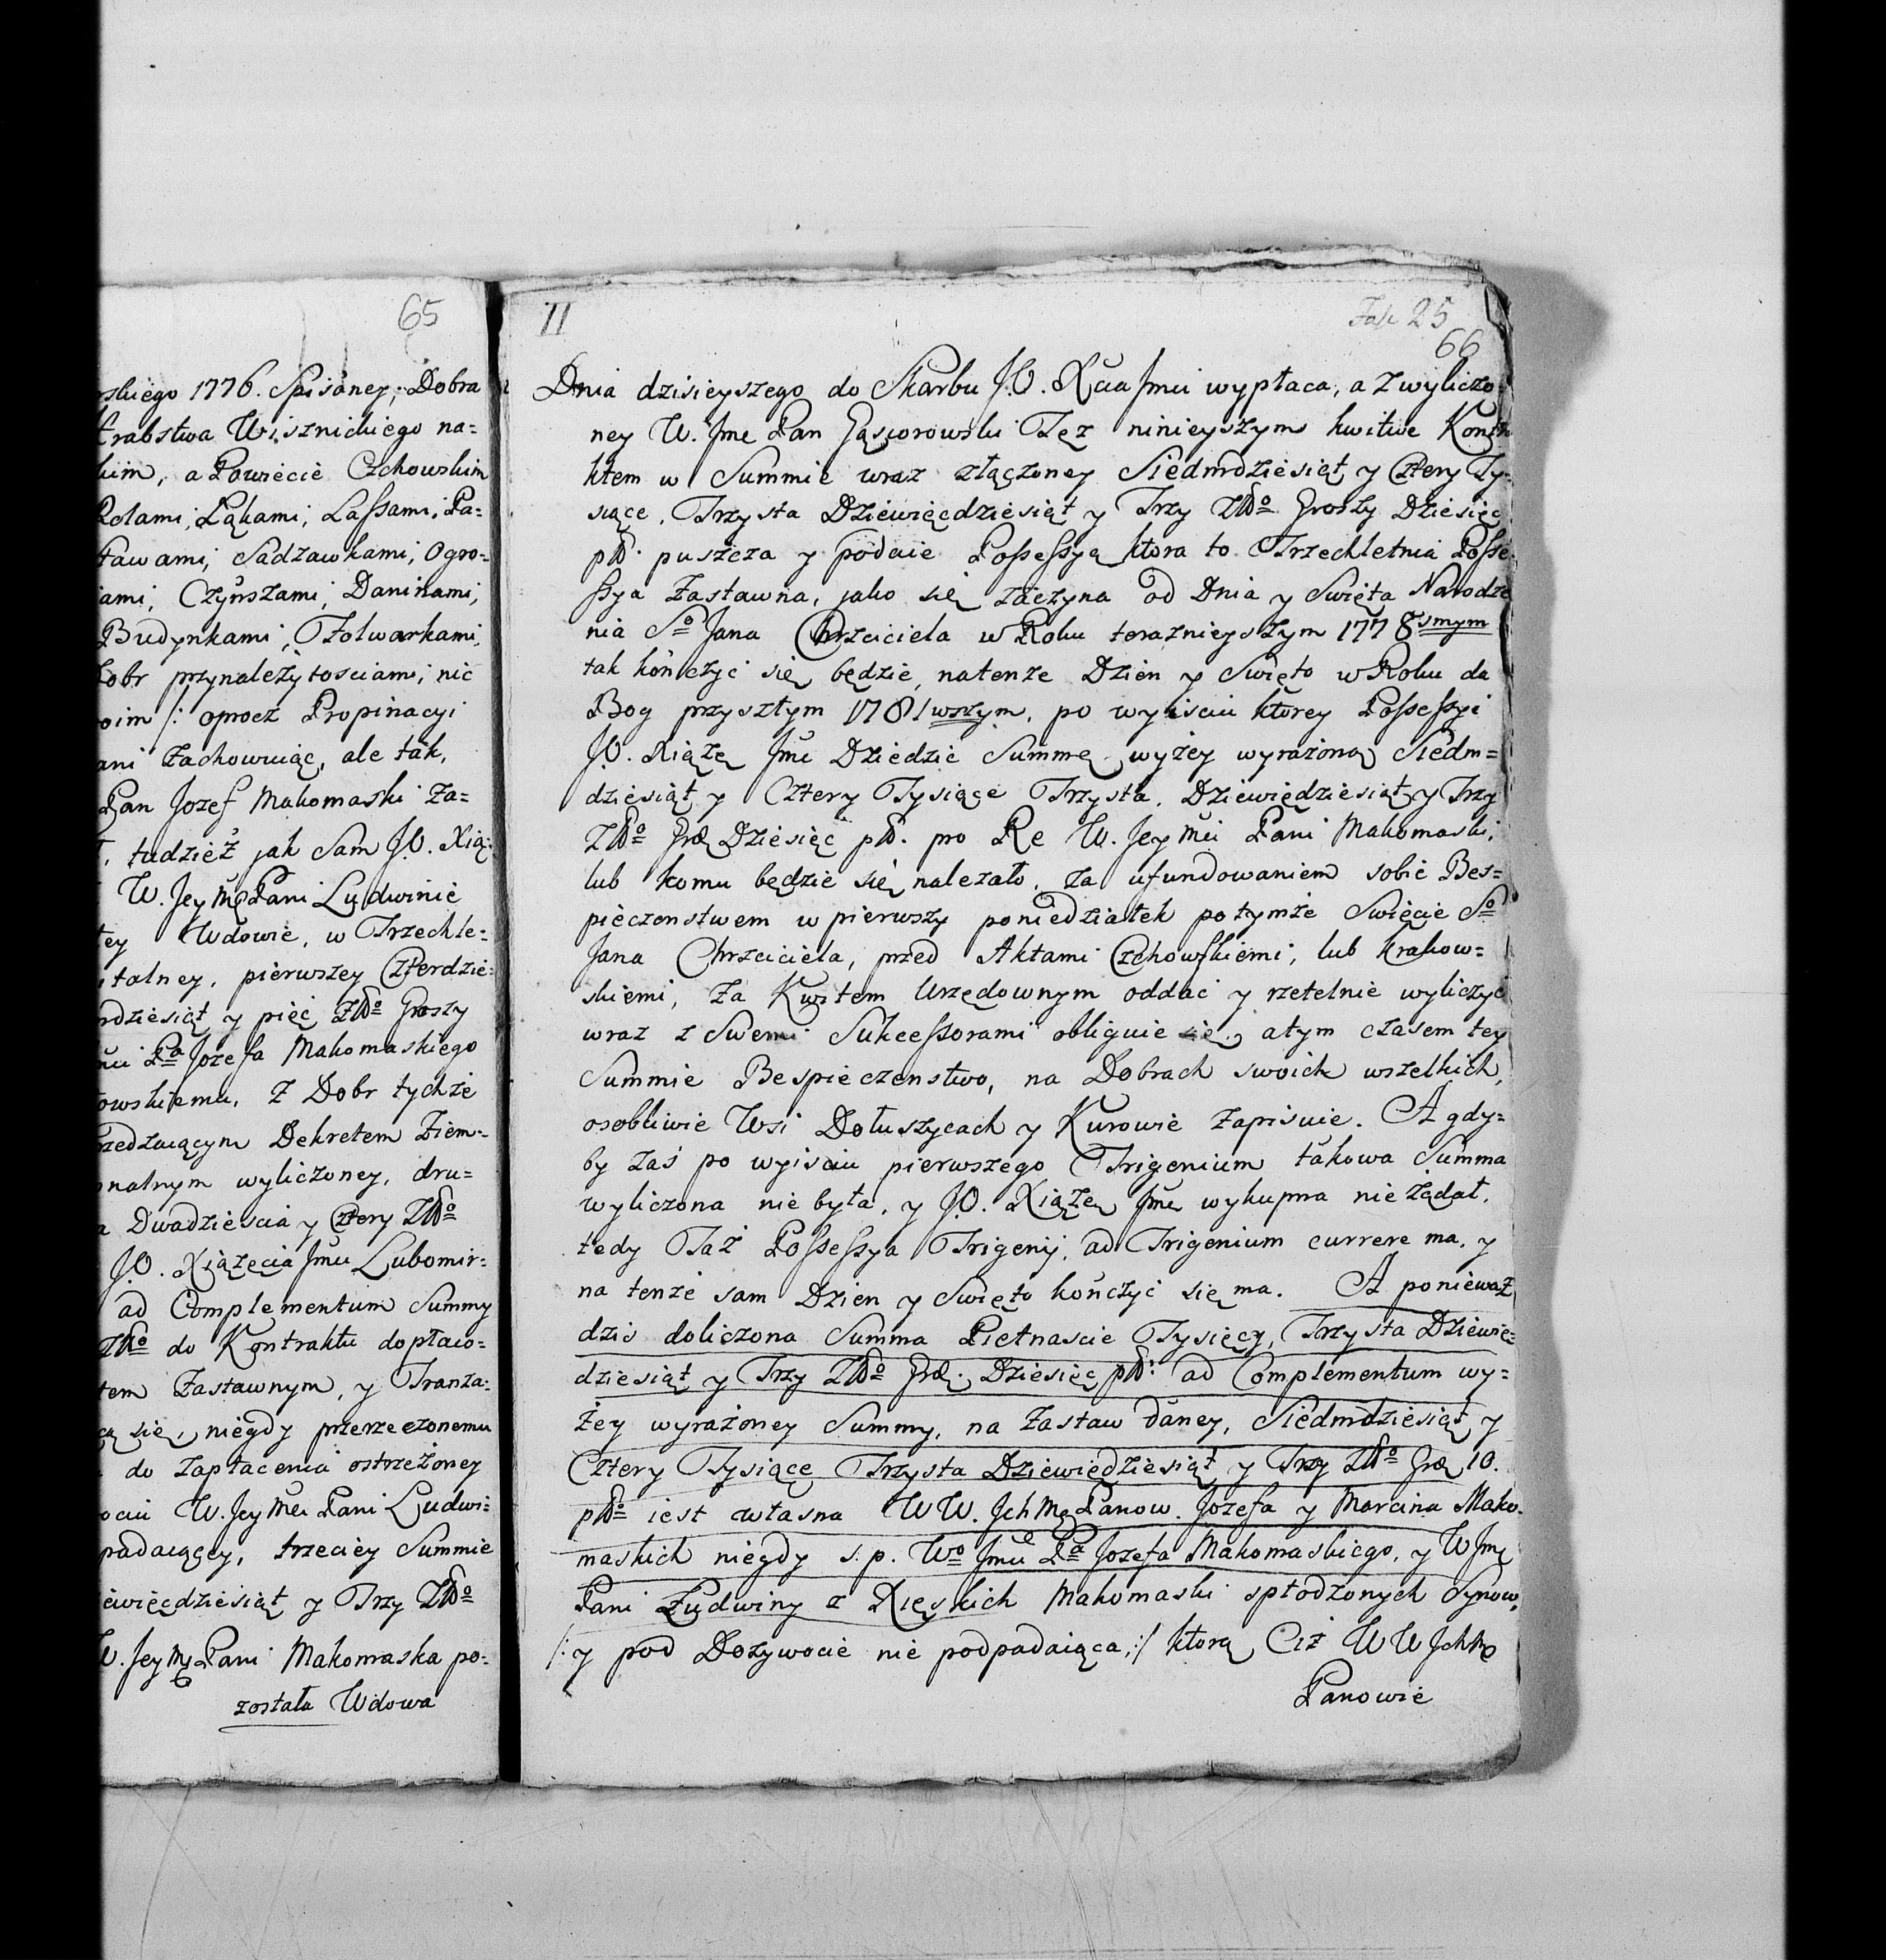 65
rskiego 1776. Spisaney; Dobra
Hrabstwa Wisznickiego na=
kim, a Powiecie Czchowskim
Rolami, Łąkami, Lassami, Pa=
stawami, Sadzawkami, Ogro=
iami, Czynszami, Daninami,
Budynkami, Folwarkami,
Dobr przynależytosciami, nic
oim /: oprocz Propinacyi
ani zachowuiąc, ale tak,
Pan Jozef Makomaski Za=
tudzież jak Sam J.O. Xią=
W. Jey Mę Pani Ludwinie
tey Wdowie, w Trzechle=
italney, pierwszey Czterdzie=
rdziesiąt y pięć Złło Groszy
mci Pa Jozefa Makomaskiego
owskiemu, z Dobr tychże
rzedzaiącym Dekretem Ziem=
nalnym wyliczoney, dru=
a Dwadziescia y Cztery Złło
J.O. Xiążęcia Jmci Lubomir=
ad Complementum Summy
Złło do Kontraktu dopłaco=
tem Zastawnym, y Tranza=
cą się, niegdy przerzeczonemu
do zapłacenia ostrzeżoney
ociu W. Jey Mci Pani Ludwi=
padaiącey, trzeciey Summie
iewięćdziesiąt y Trzy Złło
W. Jey Mę Pani Makomaska po=
została Wdowa
II
25
66
Dnia dzisieyszego do Skarbu J.O. Xcia Jmci wypłaca, a z wyliczo
ney W. Jme Pan Gąsiorowski Tęz ninieyszym kwituie Kontr
ktem w Summie wraz złączoney Siedmdziesiąt y Cztery Ty=
siące, Trzysta Dziewięćdziesiąt y Trzy Złło Groszy Dziesięc
płł. puszcza y podaie Possessyą ktora to Trzechletnia Posse=
ssya Zastawna, jako się zaczyna od Dnia y Swięta Narodze
nia So Jana Chrzciciela w Roku teraznieyszym 1778smym
tak kończyć się będzie, natenże Dzien y Swięto w Roku da
Bog przyszłym 1781wszym, po wyisciu ktorey Possessyi
J.O. Xiążę Jmć Dziedzic Summę wyżey wyrażoną Siedm=
dziesiąt y Cztery Tysiące Trzysta, Dziewiędziesiąt y Trzy
Złło Grę Dziesięc płł. pro Re W. Jey Mci Pani Makomaski,
lub komu będzie się należało, za ufundowaniem sobie Bes=
pieczenstwem w pierwszy poniedziałek po tymże Swięcie So
Jana Chrzciciela, przed Aktami Czchowskiemi, lub Krakow=
skiemi, Za Kwitem Urzędownym oddać y rzetelnie wyliczyć
wraz z Swemi Sukcessorami obliguie się, atym czasem tey
Summie Bespieczenstwo, na Dobrach swoich wszelkich,
osobliwie Wsi Dołuszycach y Kurowie zapisuie. A gdy=
by zaś po wyisciu pierwszego Trigenium takowa Summa
wyliczona nie była, y J.O. Xiążę Jmć wykupna nie żądał,
tedy Taż Possessya Trigenij, ad Trigenium currere ma, y
na tenże sam Dzien y Swięto kończyć się ma. A ponieważ
dzis doliczona Summa Pietnascie Tysięcy, Trzysta Dziewię=
dziesiąt y Trzy Złło Grę. Dziesięc płł: ad Complementum wy=
żey wyrażoney Summy, na Zastaw daney, Siedmdziesiąt y
Cztery Tysiące Trzysta Dziewiędziesiąt y Trzy Złło Grę 10.
płło iest własna WW. Jch Mę Panow Jozefa y Marcina Mako=
maskich niegdy s.p. Wo Jmci Pa Jozefa Makomaskiego, y W Jmę
Pani Ludwiny z Xięskich Makomaski spłodzonych Synow,
/: y pod Dożywocie nie podpadaiąca, :/ ktorą Ciż WW Jchm
Panowie